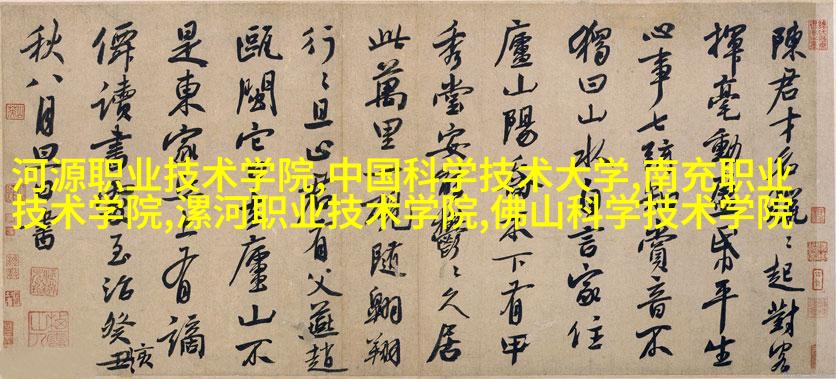 河源职业技术学院,中国科学技术大学,南充职业
技术学院,漯河职业技术学院,佛山科学技术学院
陳君才 起對客
揮毫動 平生
心事七 賞音不
獨曰山水 言家住
廬山陽 下有甲
秀堂安 久居
此萬里 隨翱翔
行〻且止 有父燕趙
甌閩它 廬山不
是東家 有謫
讀書 至治癸亥
秋八月